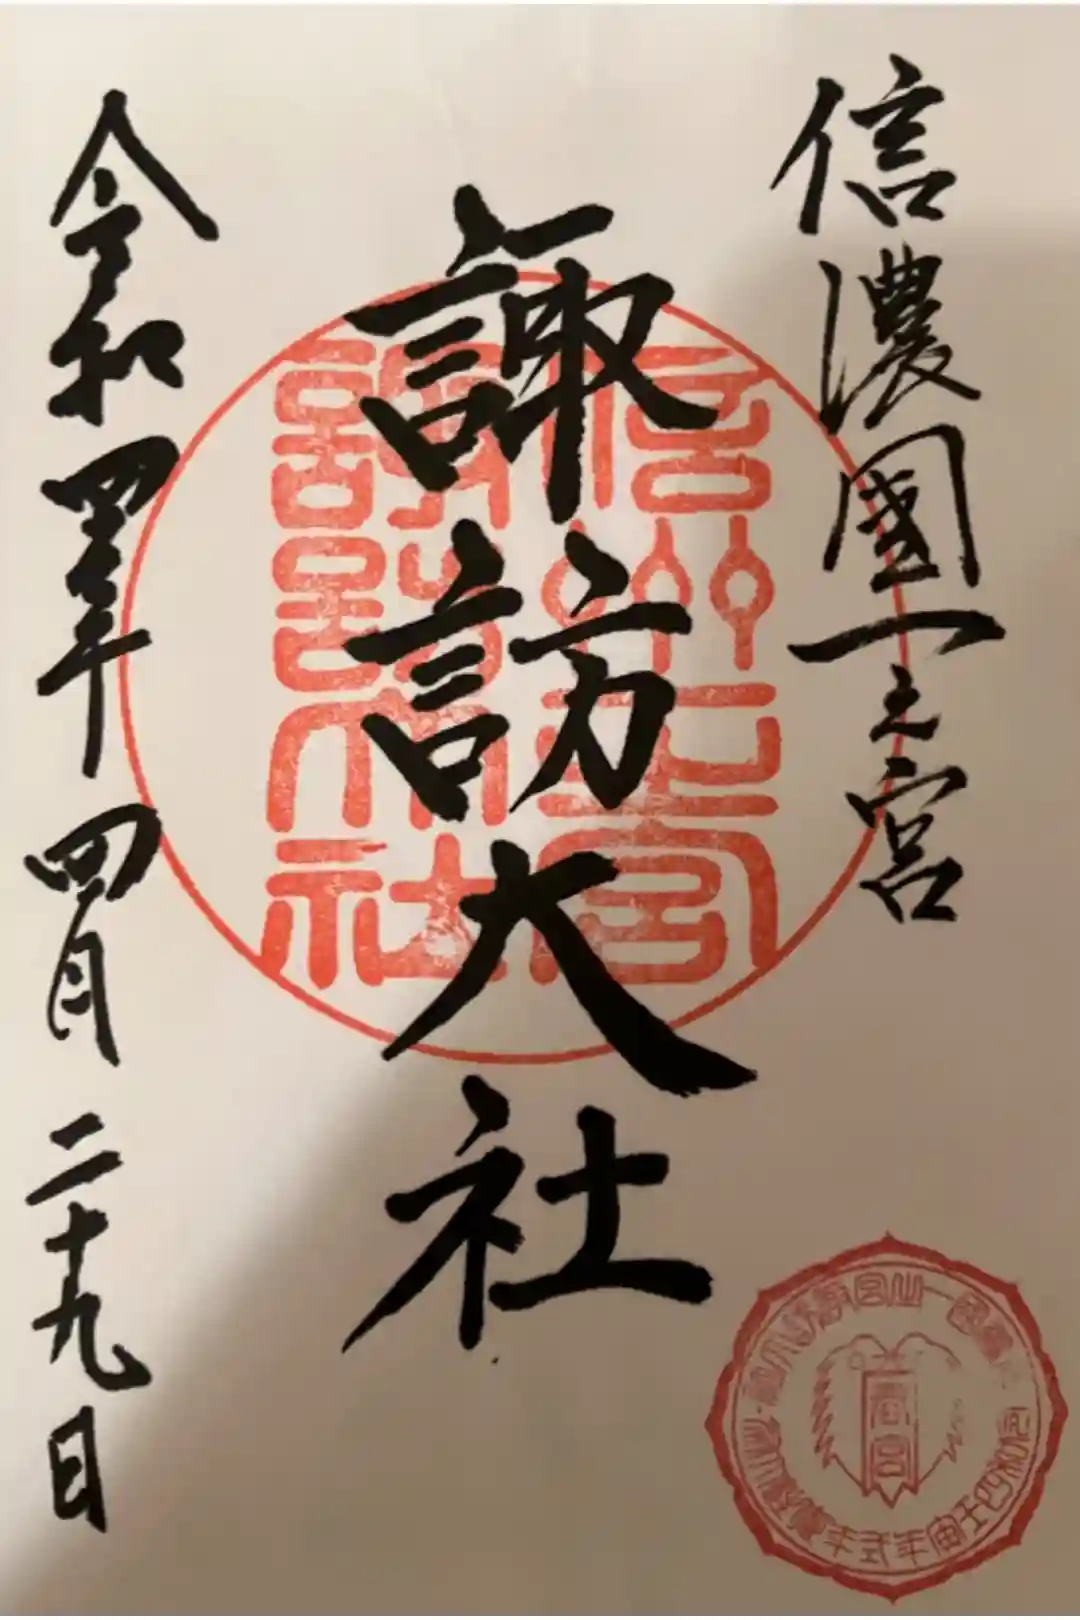 信濃國一之宮
諏訪大社
令和四年四月二十九日
信州一之宮
諏訪大社
春宮